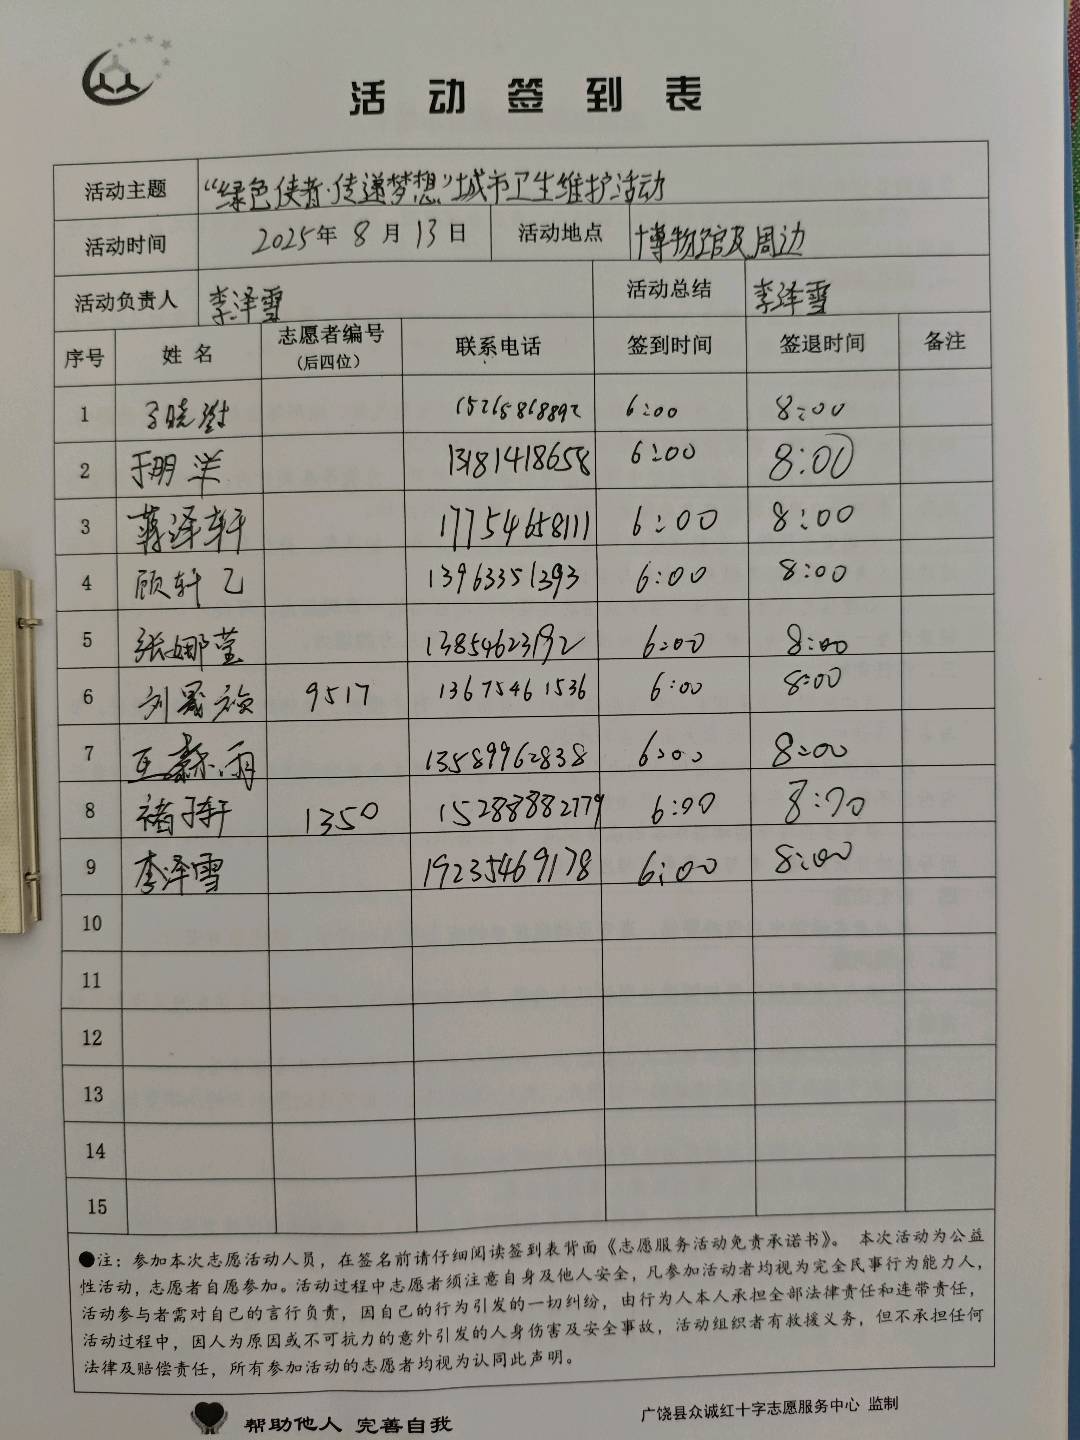 活动签到表
活动主题 “绿色使者·传递梦想”城市卫生维护活动
活动时间 2025年 8 月 13 日 活动地点 博物馆及周边
活动负责人 李泽雪 活动总结 李泽雪
序号 姓 名 志愿者编号 (后四位) 联系电话 签到时间 签退时间 备注
1 15265868892 6:00 8:00
2 洋 13181418658 6:00 8:00
3 蒋泽轩 17754658111 6:00 8:00
4 顾轩乙 13963351393 6:00 8:00
5 张娜莹 13854623192 6:00 8:00
6 刘晟 9517 13675461536 6:00 8:00
7 雨 13589962838 6:00 8:00
8 褚子轩 1350 15288882779 6:00 8:00
9 李泽雪 19235469178 6:00 8:00
10
11
12
13
14
15
●注：参加本次志愿活动人员，在签名前请仔细阅读签到表背面《志愿服务活动免责承诺书》。 本次活动为公益
性活动，志愿者自愿参加。活动过程中志愿者须注意自身及他人安全，凡参加活动者均视为完全民事行为能力人，
活动参与者需对自己的言行负责，因自己的行为引发的一切纠纷，由行为人本人承担全部法律责任和连带责任，
活动过程中，因人为原因或不可抗力的意外引发的人身伤害及安全事故，活动组织者有救援义务，但不承担任何
法律及赔偿责任，所有参加活动的志愿者均视为认同此声明。
帮助他人 完善自我
广饶县众诚红十字志愿服务中心 监制